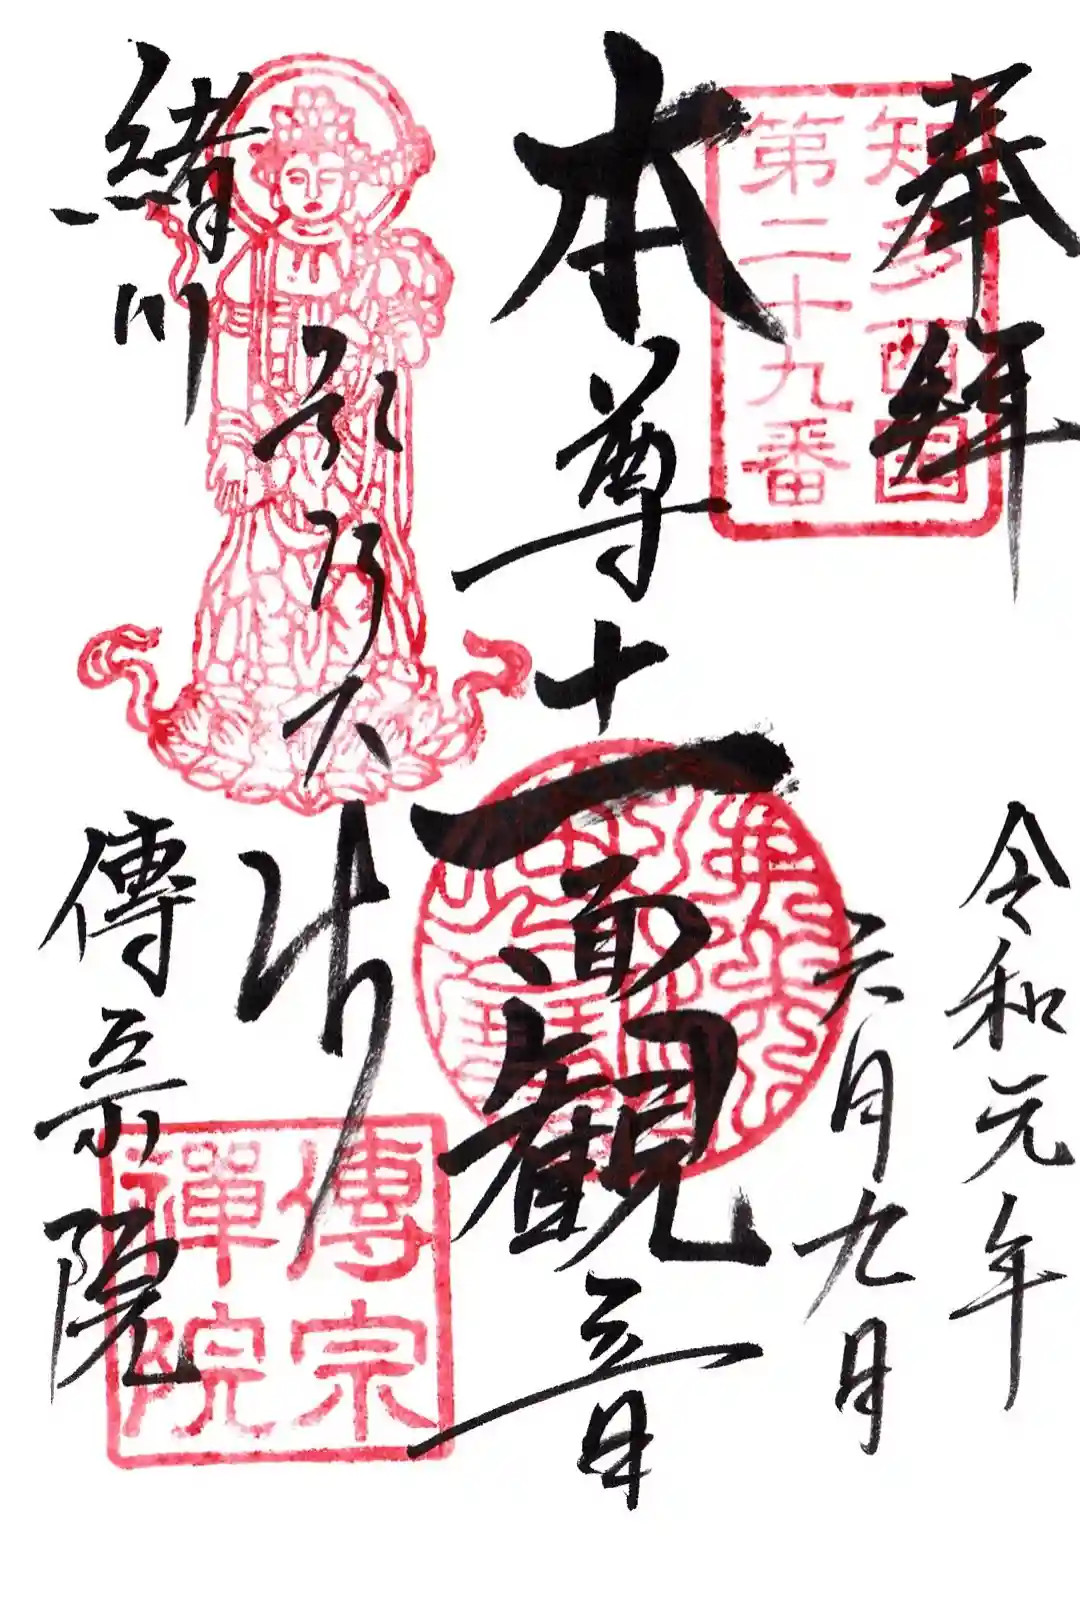 奉拝
知多西国
第二十九番
令和元年
六月九日
本尊十一面観音
緒川
傳宗院
傳宗
禪院